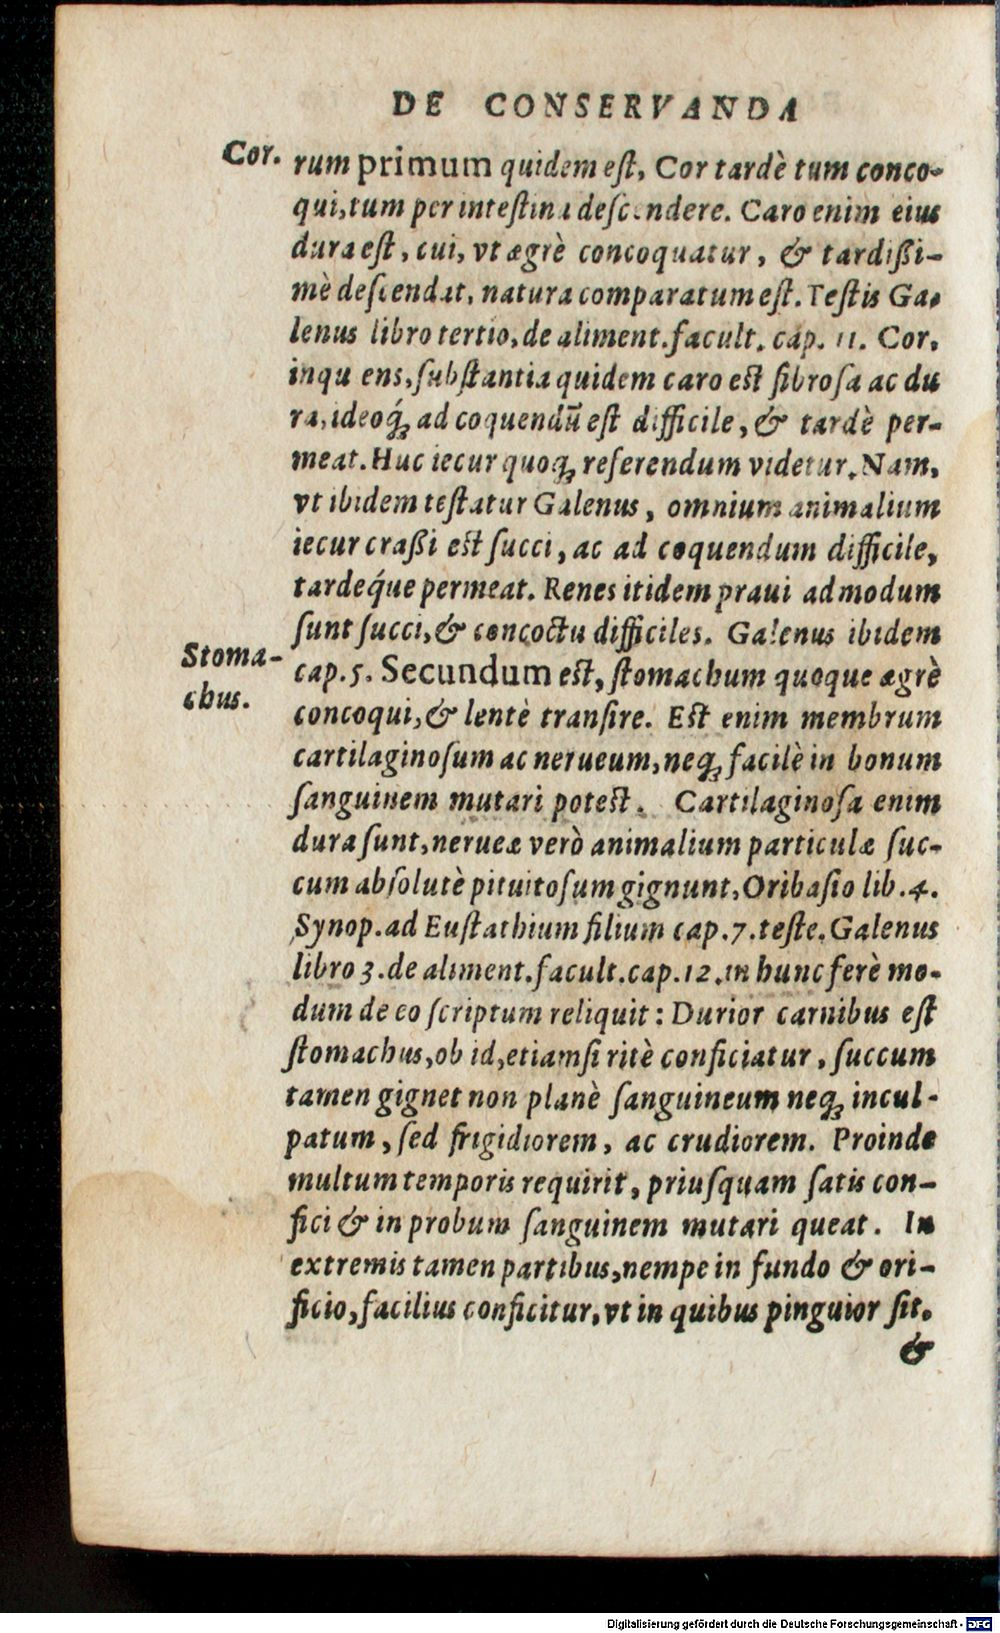 DE CONSERVANDA
Cor.
rum primum quidem eſt, Cor tardè tum conco-
qui, tum per inteſtina deſcendere. Caro enim eius
dura eſt, cui, vt ægrè concoquatur, & tardißi-
mè deſcendat, natura comparatum eſt. Teſtis Ga-
lenus libro tertio, de aliment. facult. cap. 11. Cor,
inqu ens, ſubſtantia quidem caro eſt fibroſa ac du
ra, ideoq́ꝫ ad coquendū eſt difficile, & tardè per-
meat. Huc iecur quoqꝫ referendum videtur. Nam,
vt ibidem teſtatur Galenus, omnium animalium
iecur craßi eſt ſucci, ac ad coquendum difficile,
tardeq́ue permeat. Renes itidem praui admodum
ſunt ſucci, & concoctu difficiles. Galenus ibidem
Stoma-
chus.
cap. 5. Secundum eſt, ſtomachum quoque ægrè
concoqui, & lentè tranſire. Eſt enim membrum
cartilaginoſum ac nerueum, neqꝫ facilè in bonum
ſanguinem mutari poteſt. Cartilaginoſa enim
dura ſunt, nerueæ verò animalium particulæ ſuc-
cum abſolutè pituitoſum gignunt, Oribaſio lib. 4.
Synop. ad Euſtathium filium cap. 7. teſte. Galenus
libro 3. de aliment. facult. cap. 12. in hunc ferè mo-
dum de eo ſcriptum reliquit: Durior carnibus eſt
ſtomachus, ob id, etiamſi ritè conficiatur, ſuccum
tamen gignet non planè ſanguineum neqꝫ incul-
patum, ſed frigidiorem, ac crudiorem. Proinde
multum temporis requirit, priuſquam ſatis con-
fici & in probum ſanguinem mutari queat. In
extremis tamen partibus, nempe in fundo & ori-
ficio, facilius conficitur, vt in quibus pinguior ſit.
&
Digitalisierung gefördert durch die Deutsche Forschungsgemeinschaft - DFG